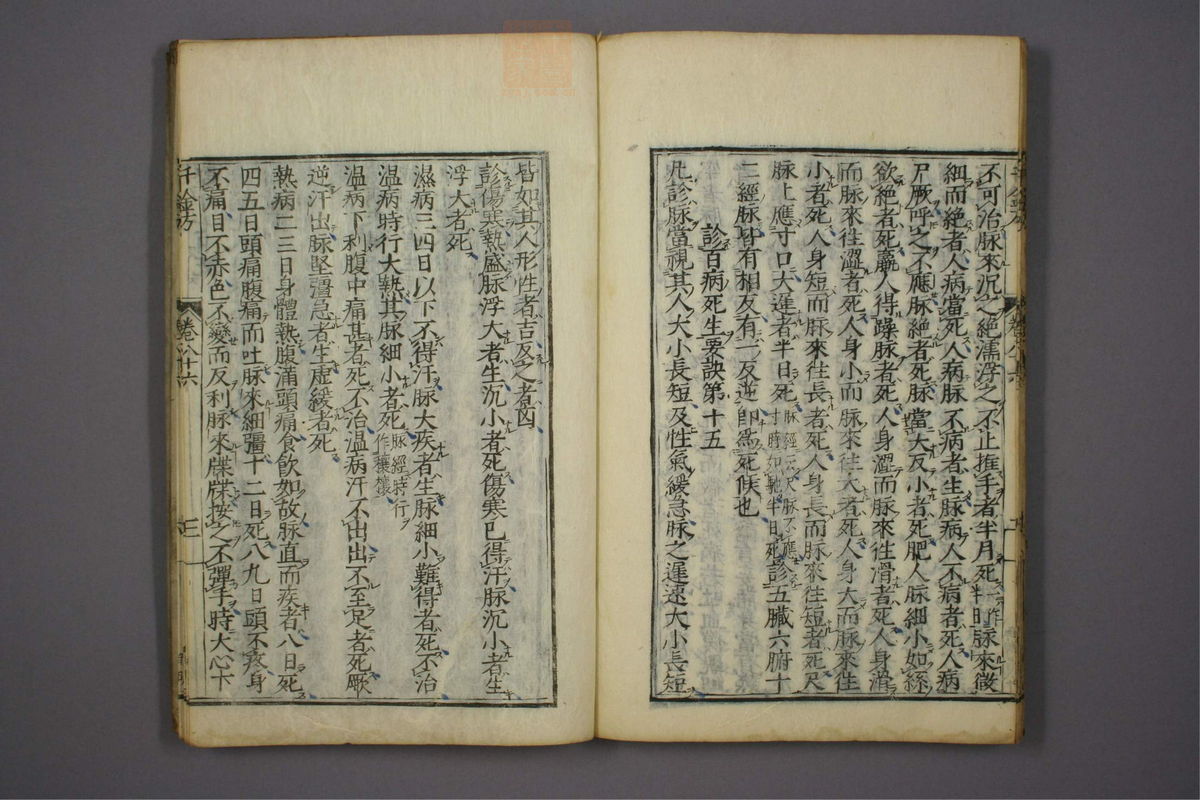 不可治脉來沉之絕濡浮之不止推手者半月死一作半日脉來微
細而絕者人病當死人病脉不病者生脉病人不病者死人病
尸厥呼之不應脉絕者死脉當大反小者死肥人脉細小如絲
欲絕者死羸人得躁脉者死人身澀而脉來往滑者死人身滑
而脉來往澀者死人身小而脉來往大者死人身大而脉來往
小者死人身短而脉來往長者死人身長而脉來往短者死尺
脉上應寸口大遲者半日死脉經云尺脉不應寸時如馳半日死診五臟六腑十
二經脉皆有相反有一反逆即爲死候也
診百病死生要訣第十五
凡診脉當視其人大小長短及性氣緩急脉之遲速大小長短
皆如其人形性者吉反之者凶
診傷寒熱盛脉浮大者生沉小者死傷寒已得汗脉沉小者生
浮大者死
濕病三四日以下不得汗脉大疾者生脉細小難得者死不治
温病時行大熱其脉細小者死脉經時行作䕲䕲
温病下利腹中痛甚者死不治温病汗不出出不至足者死厥
逆汗出脉堅彊急者生虛緩者死
熱病二三日身體熱腹滿頭痛食飲如故脉直而疾者八日死
四五日頭痛腹痛而吐脉來細彊十二日死八九日頭不疼身
不痛目不赤色不變而反利脉來牒牒按之不彈手時大心下
千金方
卷八十六
三